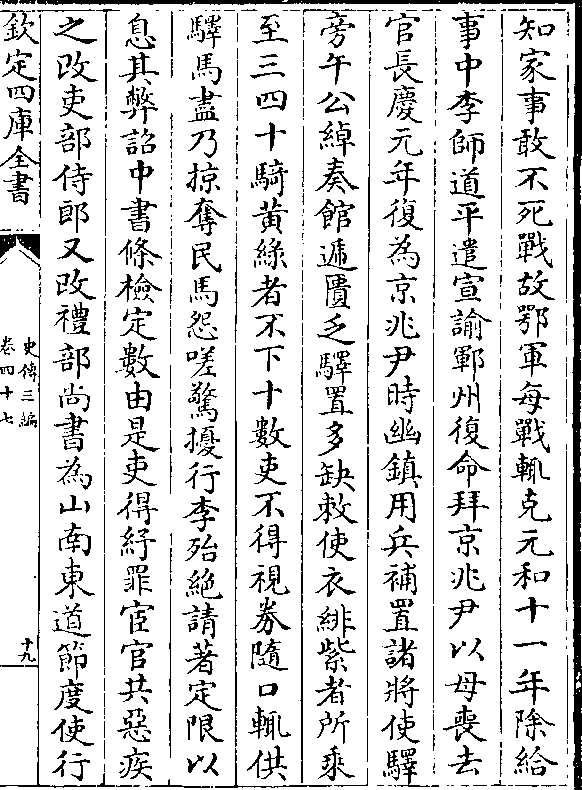 知家事敢不死戰故鄂軍每戰輒克元和十一年除給
事中李師道平遣宣諭鄆州復命拜京兆尹以母喪去
官長慶元年復為京兆尹時幽鎮用兵補置諸將使驛
旁午公綽奏館遞匱乏驛置多缺敕使衣緋紫者所乘
至三四十騎黃綠者不下十數吏不得視券隨口輒供
驛馬盡乃掠奪民馬怨嗟驚擾行李殆絶請著定限以
息其弊詔中書條檢定數由是吏得紓罪宦官共惡疾
之改吏部侍郎又改禮部尚書為山南東道節度使行
欽定四庫全書
史傳三編
卷四十七
十九